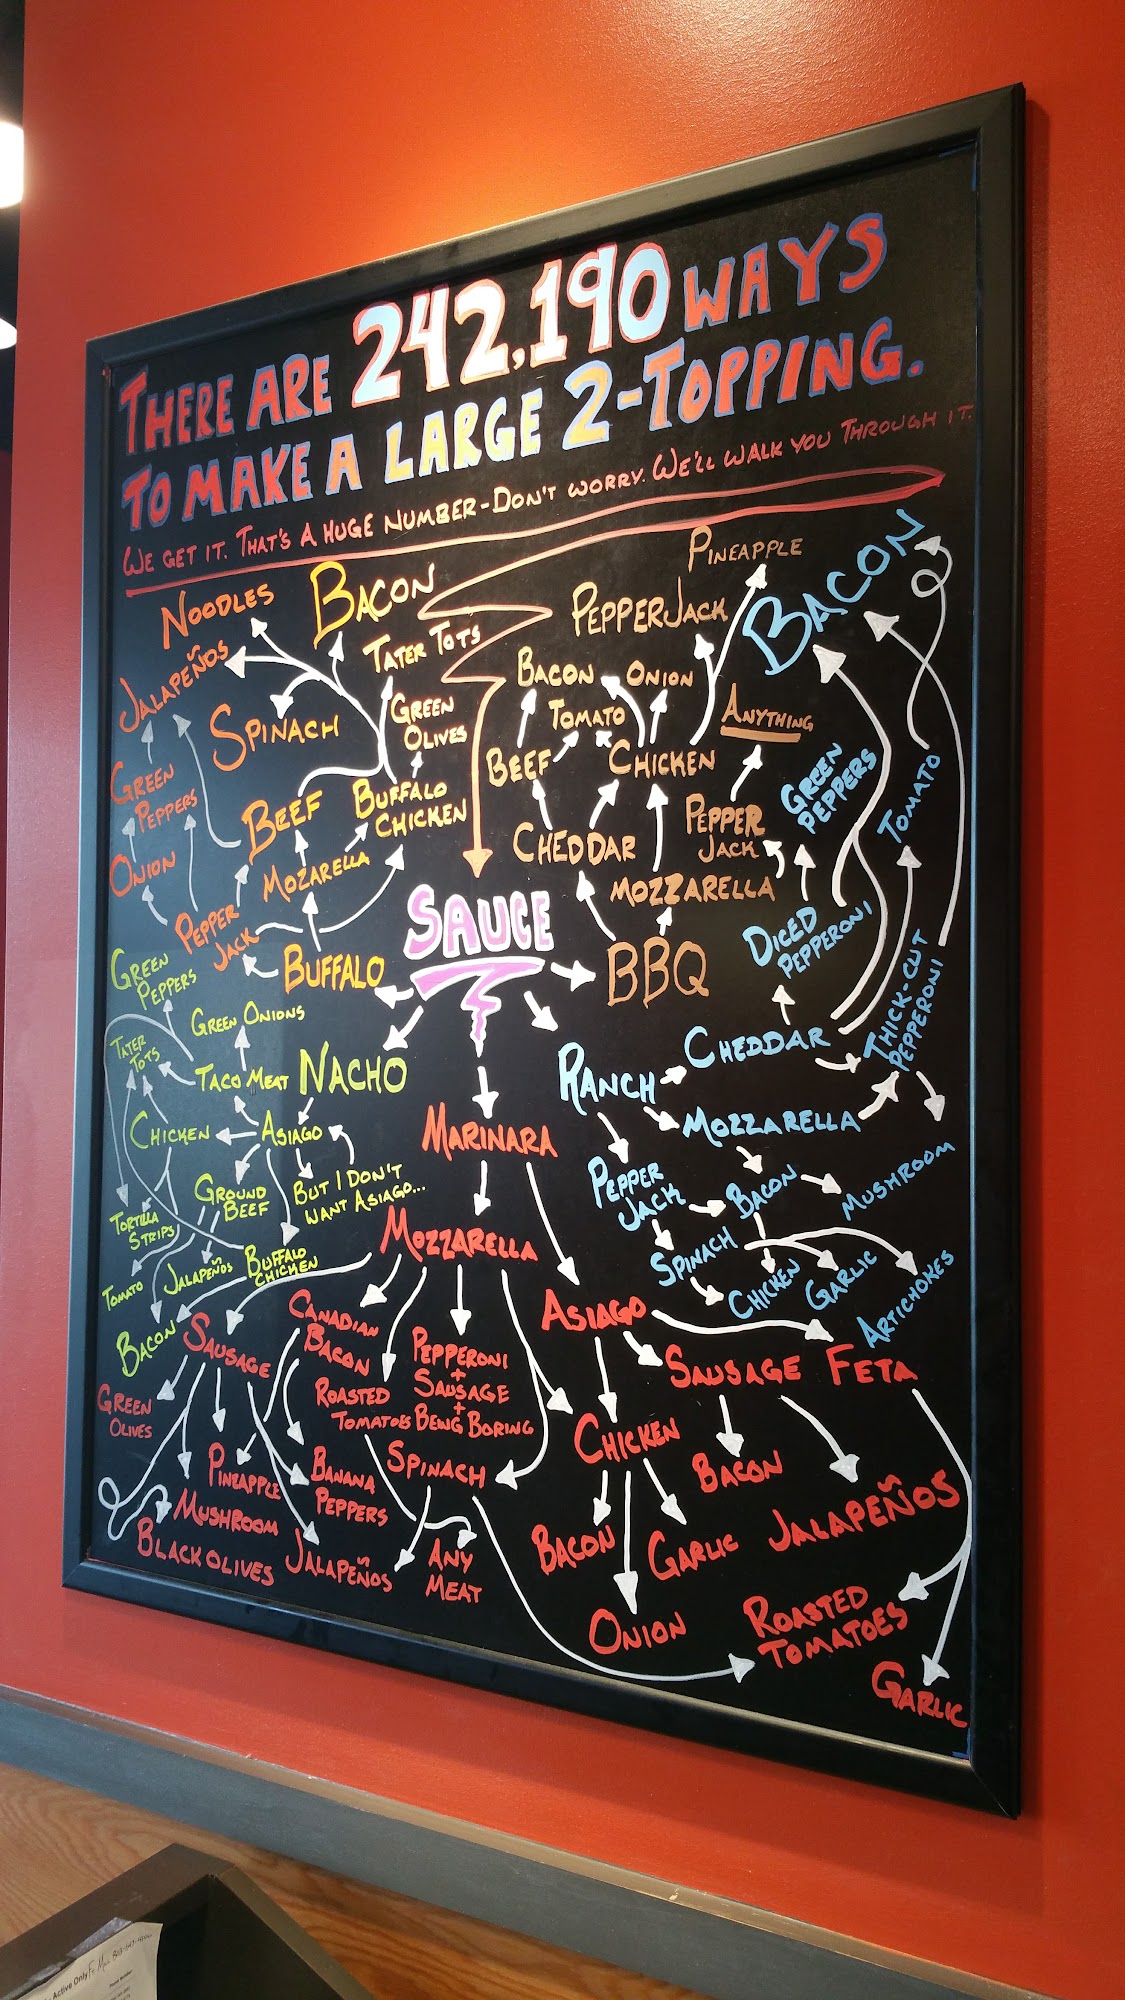 THERE ARE 242,190 WAYS
TO MAKE A LARGE 2-TOPPING.
WE GET IT. THAT'S A HUGE NUMBER-DON'T WORRY. WE'LL WALK YOU THROUGH IT.
NOODLES
BACON
JALAPEÑOS
TATER TOTS
SPINACH
GREEN
OLIVES
GREEN
PEPPERS
BEEF
BUFFALO
CHICKEN
ONION
MOZARELLA
PEPPER
JACK
BUFFALO
PINEAPPLE
PEPPERJACK
BACON
ONION
TOMATO
ANYTHING
BEEF
CHICKEN
CHEDDAR
PEPPER
JACK
MOZZARELLA
BBQ
SAUCE
BACON
GREEN
PEPPERS
TOMATO
DICED
PEPPERONI
THICK-CUT
PEPPERONI
CHEDDAR
RANCH
MOZZARELLA
PEPPER
JACK
BACON
MUSHROOM
SPINACH
CHICKEN
GARLIC
ARTICHOKES
GREEN
PEPPERS
GREEN ONIONS
TATER
TOTS
TACO MEAT
NACHO
CHICKEN
ASIAGO
GROUND
BEEF
BUT I DON'T
WANT ASIAGO...
TORTILLA
STRIPS
TOMATO
JALAPEÑOS
BUFFALO
CHICKEN
BACON
MARINARA
MOZZARELLA
SAUSAGE
CANADIAN
BACON
ROASTED
TOMATOES
PEPPERONI
+
SAUSAGE
+
BEING BORING
GREEN
OLIVES
PINEAPPLE
BANANA
PEPPERS
SPINACH
MUSHROOM
BLACK OLIVES
JALAPEÑOS
ANY
MEAT
ASIAGO
SAUSAGE
FETA
CHICKEN
BACON
JALAPEÑOS
BACON
GARLIC
ONION
ROASTED
TOMATOES
GARLIC
Active Only